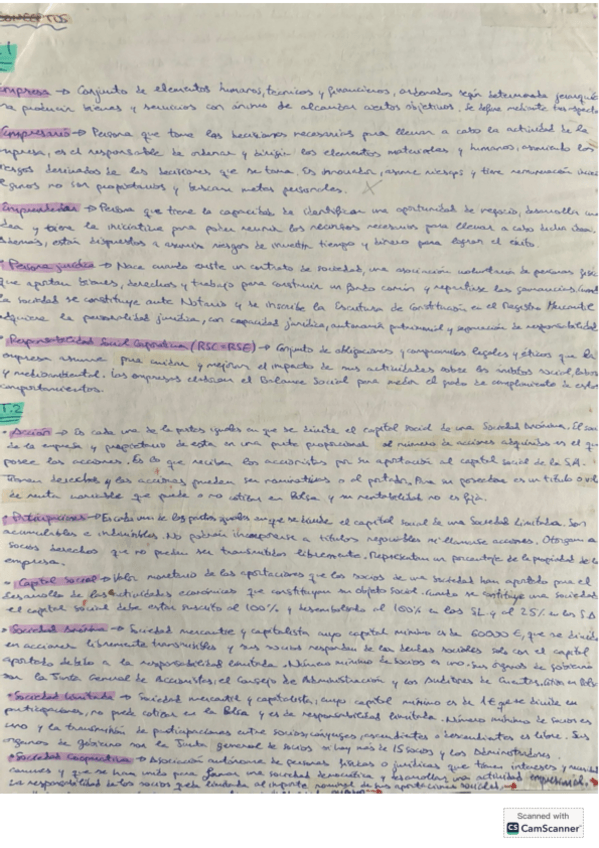 CONCEPTOS
T.1
Empresa → Conjunto de elementos humanos, técnicos y financieros, ordenados según determinada jerarquía
para producir bienes y servicios con ánimo de alcanzar ciertos objetivos. Se define mediante
Empresario → Persona que toma las decisiones necesarias para llevar a cabo la actividad de la
empresa, es el responsable de ordenar y dirigir los elementos materiales y humanos, asumiendo los
riesgos derivados de las decisiones que se toma. Es innovador, asume riesgos y tiene remuneración
algunos no son propietarios y buscan metas personales.
Emprendedor → Persona que tiene la capacidad de identificar una oportunidad de negocio, desarrollar una
idea y tiene la iniciativa para poder reunir los recursos necesarios para llevar a cabo dicha idea.
Además, están dispuestos a asumir riesgos de invertir tiempo y dinero para lograr el éxito.
• Persona jurídica → Nace cuando existe un contrato de sociedad, una asociación voluntaria de personas
que aportan bienes, derechos y trabajo para construir un fondo común y repartirse las ganancias,
la sociedad se constituye ante Notario y se inscribe la Escritura de Constitución en el Registro Mercantil
adquiere la personalidad jurídica, con capacidad jurídica, autonomía patrimonial y separación de responsabilidad.
• Responsabilidad Social Corporativa (RSC=RSE) → Conjunto de obligaciones y compromisos legales y éticos que la
empresa asume para cuidar y mejorar el impacto de sus actividades sobre los ámbitos social, laboral
y medioambiental. Las empresas elaboran el Balance Social para medir el grado de cumplimiento de estos
comportamientos.
T.2
• Acción → Es cada una de la partes iguales en que se divide el capital social de una Sociedad Anónima. El
de la empresa y propietario de esta en una parte proporcional al número de acciones adquiridas es el que
posee las acciones. Es lo que reciben los accionistas por su aportación al capital social de la S.A.
Otorgan derechos y las acciones pueden ser nominativas o al portador. Para su poseedor es un título
de renta variable que puede o no cotizar en Bolsa y su rentabilidad no es fija.
• Participaciones → Es cada una de las partes iguales en que se divide el capital social de una Sociedad Limitada. Son
acumulables e indivisibles. No podrán incorporarse a títulos negociables ni llamarse acciones. Otorgan a
socios derechos que no pueden ser transmitidos libremente. Representan un porcentaje de la propiedad de la
empresa.
• Capital Social → Valor monetario de las aportaciones que los socios de una sociedad han aportado para el
desarrollo de las actividades económicas que constituyen su objeto social. Cuando se constituye una sociedad
el capital social debe estar suscrito al 100% y desembolsado al 100% en las SL y al 25% en las S.A
• Sociedad Anónima → Sociedad mercantil y capitalista cuyo capital mínimo es de 60000 €, que se divide
en acciones libremente transmisibles y sus socios responden de las deudas sociales solo con el capital
aportado debido a la responsabilidad limitada. Número mínimo de socios es uno. Sus órganos de gobierno
son la Junta General de Accionistas, el Consejo de Administración y los Auditores de Cuentas.
• Sociedad Limitada → Sociedad mercantil y capitalista, cuyo capital mínimo es de 1€ que se divide en
participaciones, no puede cotizar en la Bolsa y es de responsabilidad limitada. Número mínimo de socios es
uno y la transmisión de participaciones entre socios, cónyuges, ascendientes o descendientes es libre. Sus
órganos de gobierno son la Junta general de socios si hay más de 15 socios y los Administradores.
• Sociedad Cooperativa → Asociación autónoma de personas físicas o jurídicas que tienen intereses y
comunes y que se han unido para formar una sociedad democrática y desarrollar una actividad empresarial.
La responsabilidad de los socios queda limitada al importe nominal de sus aportaciones sociales.
Scanned with
CS CamScanner